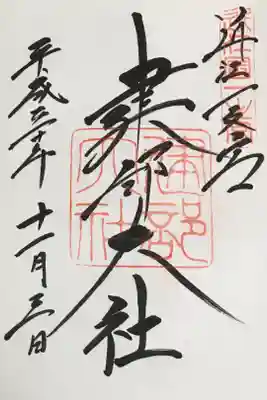 近江一之宮
建部大社
建部
大社
平成三十年十一月三日